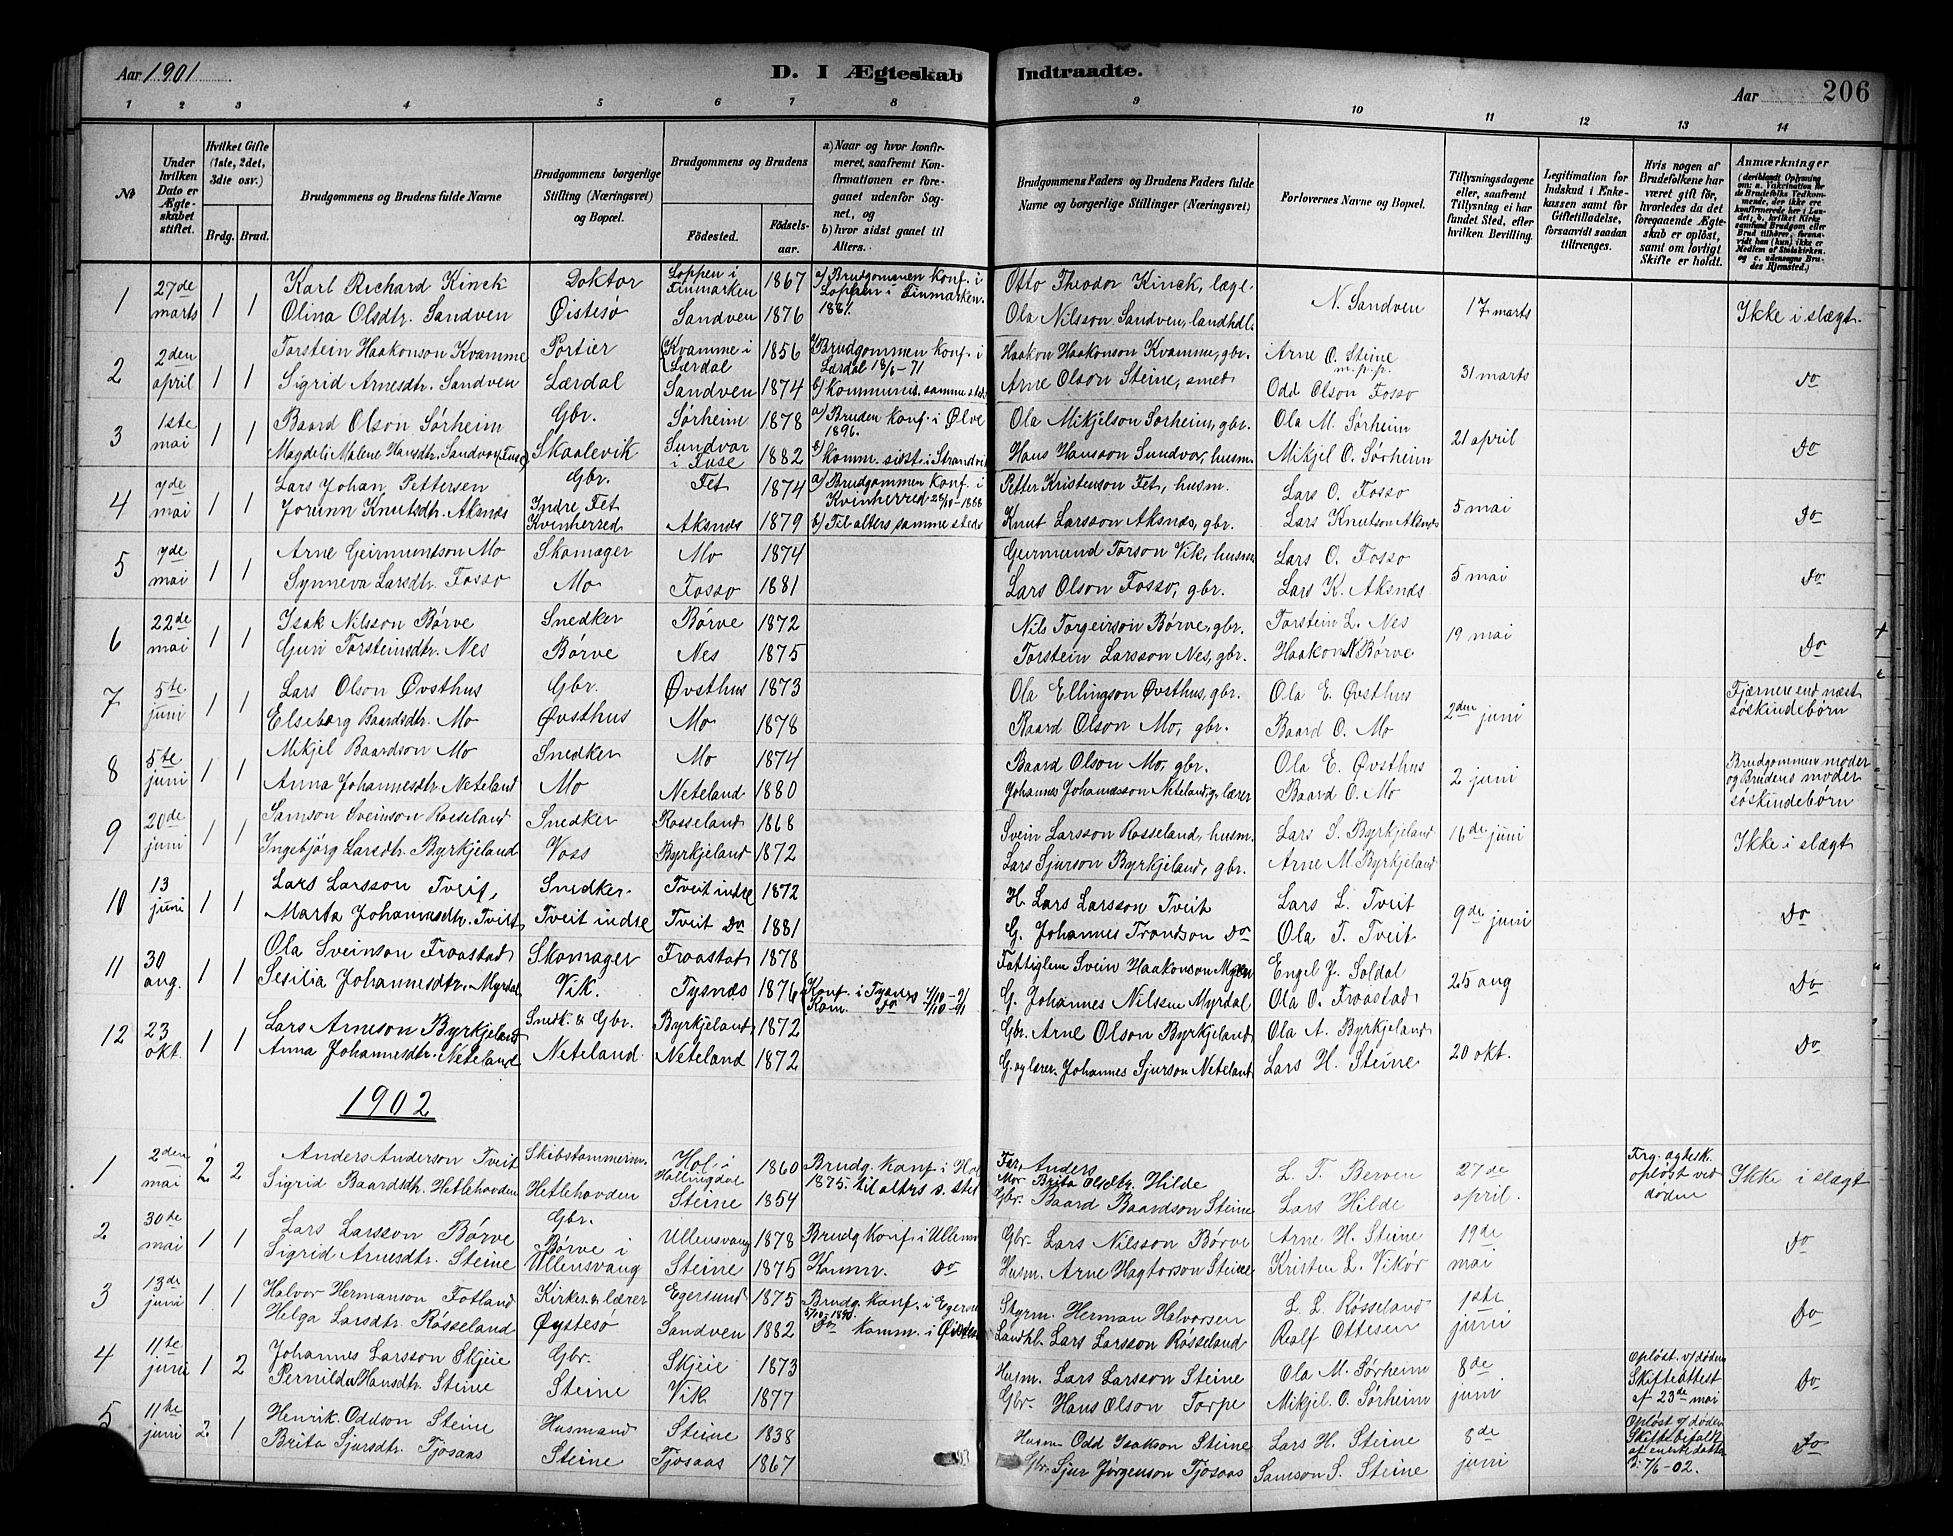 Aar 1901 D. I Ægteskab Indtraadte. Aar 206
1 2 3 4 5 6 7 8 9 10 11 12 13 14
No
Under hvilken Dato er Ægteskabet stiftet.
Hvilket Gifte (1ste, 2det, 3die osv.)
Brdg. Brud.
Brudgommens og Brudens fulde Navne
Brudgommens borgerlige Stilling (Næringsvei) og Bopæl.
Brudgommens og Brudens
Fødested. Fødselsaar.
a) Naar og hvor konfirmeret, saafremt Konfirmationen er foregaaet udenfor Sognet, og
b) hvor sidst gaaet til Alters.
Brudgommens Faders og Brudens Faders fulde Navne og borgerlige Stillinger (Næringsvei)
Forlovernes Navne og Bopæl.
Tillysningsdagene eller, saafremt Tillysning ei har fundet Sted, efter hvilken Bevilling.
Legitimation for Indskud i Enkekassen samt for Giftetilladelse, forsaavidt saadan tiltrænges.
Hvis nogen af Brudefolkene har været gift før, hvorledes da det foregaaende Ægteskab er opløst, samt om lovligt Skifte er holdt.
Anmærkninger
1 27de marts 1 1 Karl Richard Kinck Doktor Loppen i Finmarken 1867 a) Brudgommen konf. i Loppen i Finmarken Otto Theodor Kinck, læge
Olina Olsdtr. Sandven Øistesø Sandven 1876 Ola Nilsson Sandven, landhdl. N. Sandven 17 marts Ikke i slægt
2 2den april 1 1 Torstein Haakonson Kvamme Portier Kvamme i Lærdal 1856 a) Brudgommen konf. i Lærdal 18/6-71 Haakon Haakonson Kvamme, gbr. Arne O. Steine m.p.p. 31 marts Do
Sigrid Arnesdtr. Sandven Lærdal Sandven 1874 b) Kommunis. samme sted Arne Olson Steine, smed Odd Olson Fosso
3 1ste mai 1 1 Baard Olson Sørheim Gbr. Sørheim 1878 a) Bruden konf. i Ølve 1896. Ola Mikjelson Sørheim, gbr. Ola M. Sørheim 21 april Do
Magdeli Malene Hansdtr. Sandvor (Fuse) Skaalevik Sundvor i Fuse 1882 b) Komm. sidst i Strandvik Hans Hansson Sundvor, husm. Mikjel O. Sørheim
4 7de mai 1 1 Lars Johan Pettersen Gbr. Fet 1874 a) Brudgommen konf. i Kvinherred 28/10-1888 Petter Kristenson Fet, husm. Lars O. Fosso 5 mai Do
Jorunn Knutsdtr. Aksnes Indre Fet Kvinherred Aksnes 1879 b) Til alters samme sted Knut Larsson Aksnes, gbr. Lars Knutson Aksnes
5 7de mai 1 1 Arne Geirmundson Mo Skomager Mo 1874 Geirmund Torson Vik, husm. Lars O. Fosso 5 mai Do
Synneva Larsdtr. Fosso Mo Fosso 1881 Lars Olson Fosso, gbr. Lars K. Aksnes
6 22de mai 1 1 Isak Nilsson Børve Snedker Børve 1872 Nils Torgeirson Børve, gbr. Torstein L. Nes 19 mai Do
Guri Torsteinsdtr. Nes Børve Nes 1875 Torstein Larsson Nes, gbr. Haakon N Børve
7 5te juni 1 1 Lars Olson Øvsthus Gbr. Øvsthus 1873 Ola Ellingson Øvsthus, gbr. Ola E. Øvsthus 2den juni Fjærnere end næst søskindebørn
Elseborg Baardsdtr. Mo Øvsthus Mo 1878 Baard Olson Mo, gbr. Baard O. Mo
8 5te juni 1 1 Mikjel Baardson Mo Snedker Mo 1874 Baard Olson Mo, gbr. Ola E. Øvsthus 2 juni Brudgommens moder og Brudens moder søskindebørn
Anna Johannesdtr. Neteland Mo Neteland 1880 Johannes Johannesson Neteland, g. lærer Baard O. Mo
9 20de juni 1 1 Samson Sveinson Rosseland Snedker Rosseland 1868 Svein Larsson Rosseland, husm. Lars S. Byrkjeland 16de juni Ikke i slægt
Ingebjörg Larsdtr. Byrkjeland Voss Byrkjeland 1872 Lars Sjurson Byrkjeland, gbr. Arne M. Byrkjeland
10 13 juni 1 1 Lars Larsson Tveit, Snedker. Tveit indre 1872 H. Lars Larsson Tveit Lars L. Tveit 9de juni Do
Marta Johannesdtr. Tveit Tveit indre Tveit Do 1881 G. Johannes Trondson Do Ola T. Tveit
11 30 aug. 1 1 Ola Sveinson Froastad Skomager Froastad 1878 Fattiglem Svein Haakonson Myren Engel J. Soldal 25 aug Do
Sesilia Johannesdtr. Myrdal Vik. Tysnæs 1876 Konf. i Tysnes Kom. do G. Johannes Nilssen Myrdal Ola O. Froastad
12 23 okt. 1 1 Lars Arneson Byrkjeland Snedk. & Gbr. Byrkjeland 1872 Gbr. Arne Olson Byrkjeland Ola A. Byrkjeland 20 okt. Do
Anna Johannesdtr. Neteland Neteland. Neteland 1872 G. og lærer. Johannes Sjurson Neteland Lars H. Steine
1902
1 2den mai 2 2 Anders Anderson Tveit Skibstømmerm. Hol i Hallingdal 1860 Brudg. Konf. i Hol 1875. til alters s. sted Far Anders Mor Brita Olsdtr. Hilde L. T. Berven 27de april. Frg. ægtesk. opløst ved døden Ikke i slægt
Sigrid Baardsdtr. Hetlehovden Hetlehovden Steine 1854 Gbr. Baard Baardson Steine Lars Hilde
2 30te mai 1 1 Lars Larsson Børve Gbr. Ullensvang 1878 Brudg Konf. i Ullensv Gbr. Lars Nilsson Børve Arne H. Steine 19de mai Do
Sigrid Arnesdtr. Steine Børve i Ullensvang Steine 1875 Komm. Do Husm. Arne Hagtorson Steine Kristen L. Vikør
3 13de juni 1 1 Halvor Hermanson Fotland Kirkes. & lærer Egersund 1875 Brudg. Konf. i Egers 5/10-1890 Styrm. Herman Halvorsen L. L. Rosseland 1ste juni Do
Helga Larsdtr. Rosseland Øystesø Sandven 1882 Do Komm. i Øistesø Landhl. Lars Larsson Rosseland Realf Ottesen
4 11te juni 1 2 Johannes Larsson Skjeie Gbr. Skjeie 1873 Husm. Lars Larsson Steine Ola M. Sørheim 8de juni Opløst v/døden Skifteattest af 23de mai Do
Pernilda Hansdtr. Steine Steine Vik 1877 Gbr. Hans Olson Torpe Mikjel O. Sørheim
5 11te juni 2 1 Henrik Oddson Steine Husmand Steine 1838 Husm. Odd Isakson Steine Lars H. Steine 8de juni Opløst v/døden Skiftebefalt 7/6-02. Do
Brita Sjursdtr. Tjosaas Steine Tjosaas 1867 Gbr. Sjur Jørgenson Tjosaas Samson S. Steine